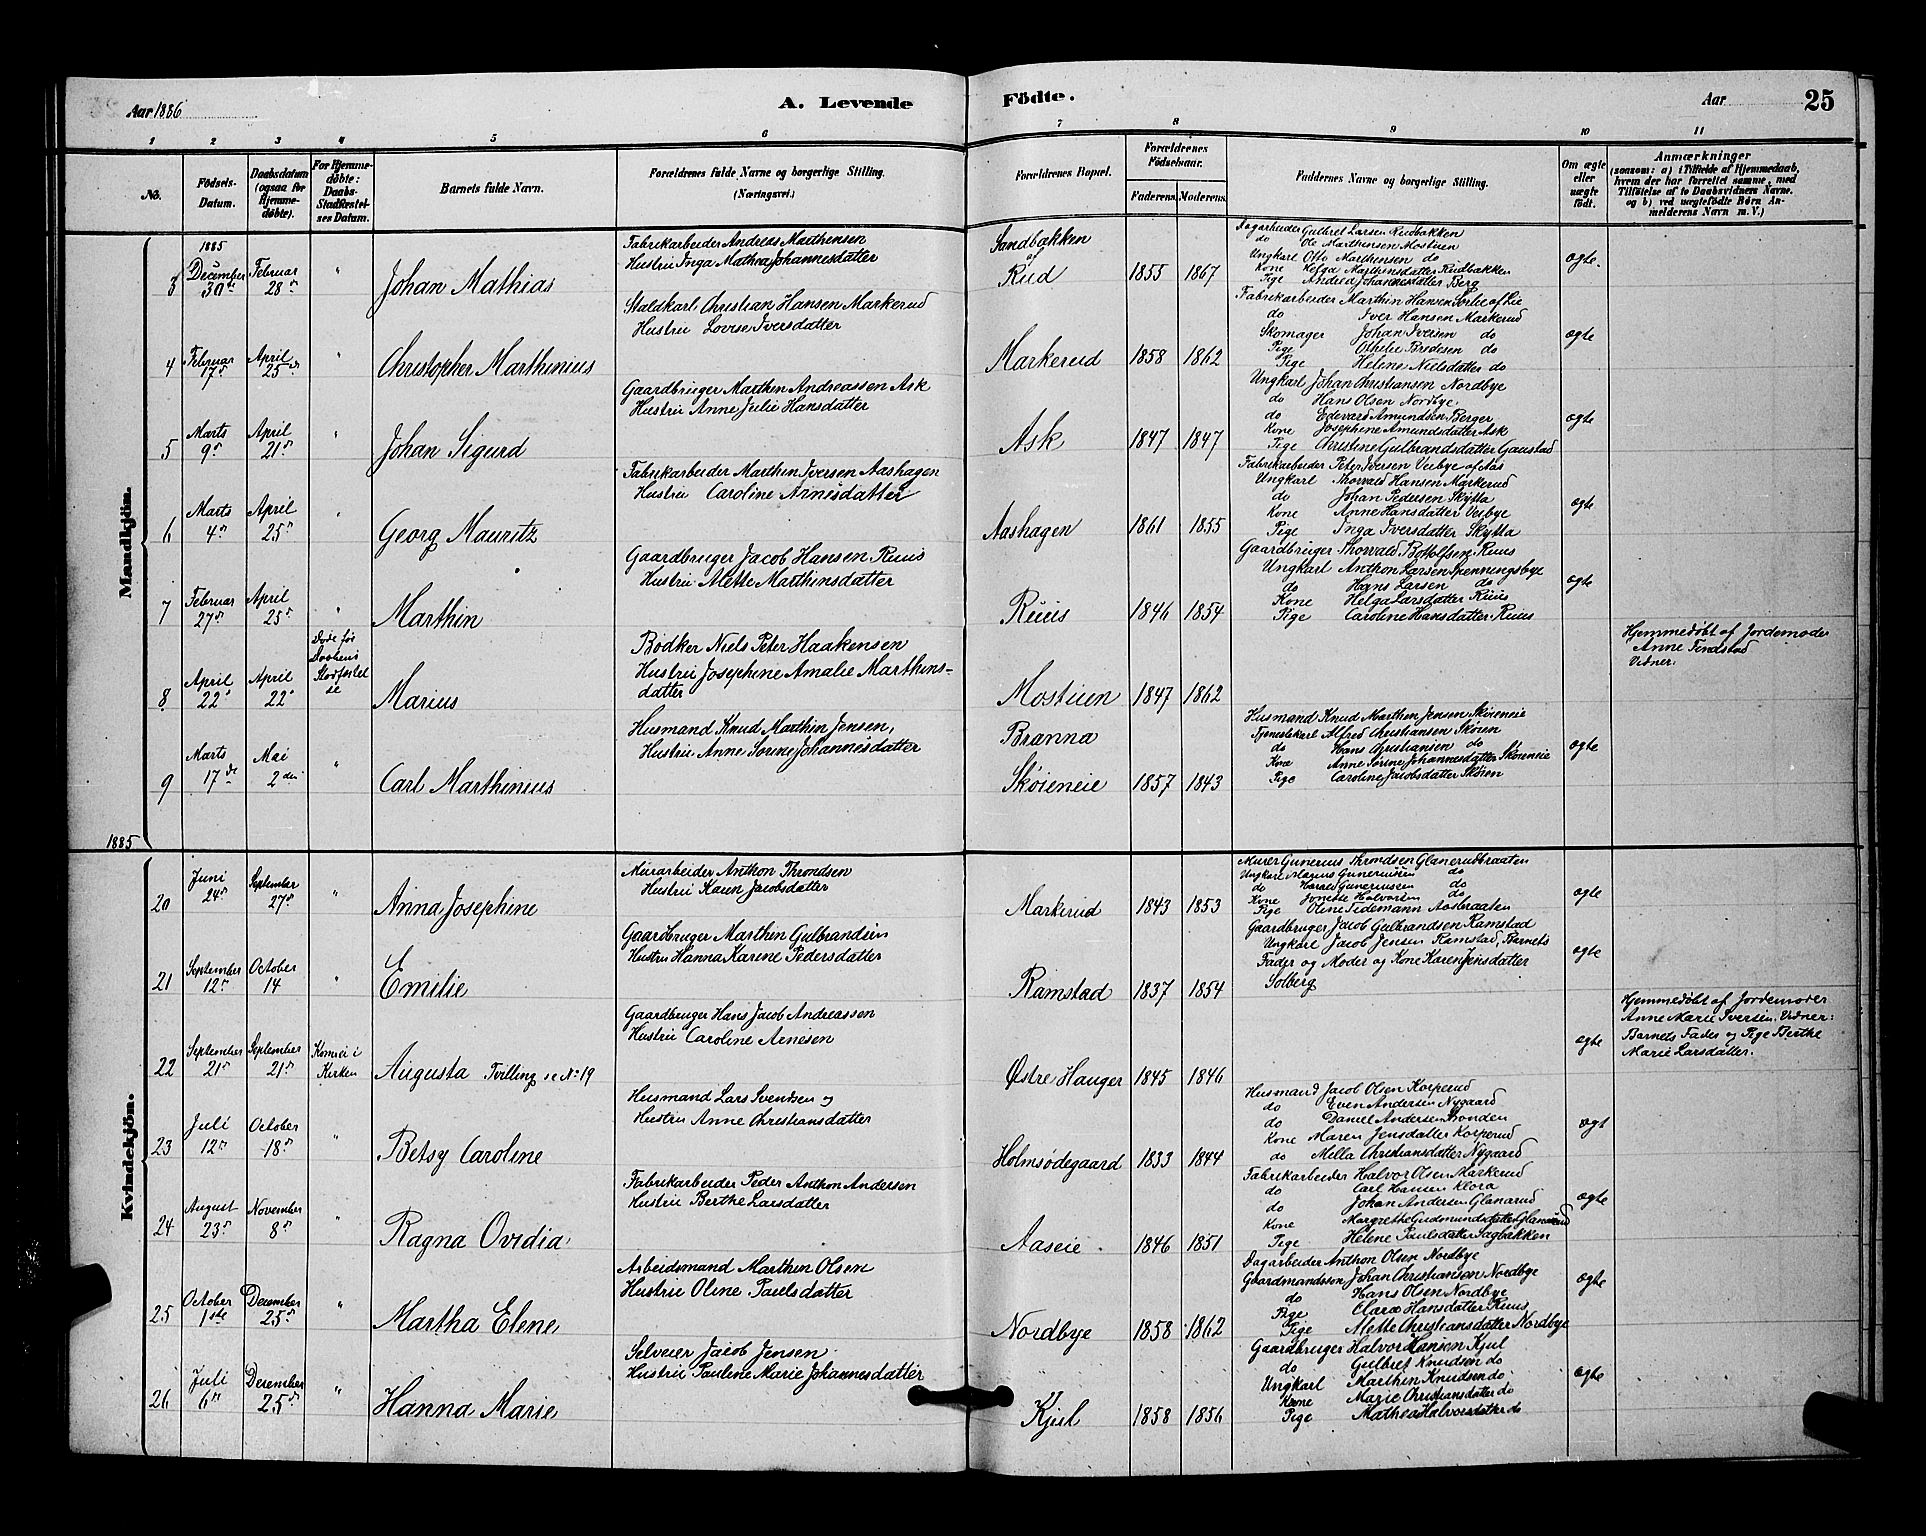 Aar 1886
A. Levende
Födte.
Aar
25
1 2 3 4 5 6 7 8 9 10 11
No.
Födsels-Datum.
Daabsdatum (ogsaa for Hjemme-døbte).
For Hjemme-døbte: Daabs-Stadfæstel-ses Datum.
Barnets fulde Navn.
Forældrenes fulde Navne og borgerlige Stilling.
(Næringsvei.)
Forældrenes Bopæl.
Forældrenes Födselsaar.
Faderens. Moderens.
Faddernes Navne og borgerlige Stilling.
Om ægte eller uægte födt.
Anmærkninger
(saasom: a) i Tilfælde af Hjemmedaab, hvem der har forrettet samme, med Tilföielse af to Daabsvidners Navne. og b) ved uægtefödte Börn Anmelderens Navn m. V.)
Mandkjön.
3
1885 December 30te
Februar 28de
"
Johan Mathias
Fabrikarbeider Andreas Marthensen
Hustru Inga Mathea Johannesdatter
Sandbakken
af
Rud
1855 1867
Dagarbeider Gulbret Larsen Rudbakken
do Ole Marthensen Mostuen
Ungkarl Otto Marthensen do
Kone Helga Marthinsdatter Rudbakken
Pige Andrea Johannesdatter Berg
ægte.
4
Februar 17de
April 25de
"
Christopher Marthinius
Staldkarl Christian Hansen Markerud
Hustru Lovise Iversdatter
Markerud
1858 1862
Fabrikarbeider Marthin Hansen Sorlie af Lie
do Iver Hansen Markerud
Skomager Johan Iversen do
Pige Othelie Bredesen do
Pige Helene Nielsdatter do
ægte
5
Marts 9de
April 21de
"
Johan Sigurd
Gaardbruger Marthin Andreassen Ask
Hustru Anne Julie Hansdatter
Ask
1847 1847
Ungkarl Johan Christiansen Nordbye
do Hans Olsen Nordbye,
do Edevard Amundsen Berger
Kone Josephine Amundsdatter Ask
Pige Christine Gulbrandsdatter Gaustad
ægte
6
Marts 4de
April 25de
"
Georg Mauritz
Fabrikarbeider Marthin Iversen Aashagen
Hustru Caroline Arnesdatter
Aashagen
1861 1855
Fabrikarbeider Peter Iversen Vesbye af Aas
Ungkarl Thorvald Hansen Markerud
do Johan Pedersen Skytta
Kone Anne Hansdatter Vesbye
Pige Inga Iversdatter Skytta
ægte
7
Februar 27de
April 25de
"
Marthin
Gaardbruger Jacob Hansen Ruus
Hustru Alette Marthinsdatter
Ruus
1846 1854
Gaardbruger Thorvald Bottolfsen Ruus
Ungkarl Anthon Larsen Spenningsbye
do Hans Larsen do
Kone Helga Larsdatter Ruus
Pige Caroline Hansdatter Ruus
ægte
8
April 22de
April 22de
Døde før
Daabens
Stadfæstel
se
Marius
Bødker Niels Peter Haakensen
Hustru Josephine Amalie Marthins-
datter
Mostuen
1847 1862
Hjemmedøbt af Jordemoder
Anne
Vidner:
9
Marts 17de
Mai 2den
"
Carl Marthinius
Husmand Knud Marthin Jensen,
Hustru Anne Sørine Johannesdatter
Brænna
Skøieneie
1857 1843
Husmand Knud Marthin Jensen Skøieneie
Tjenestekarl Alfred Christiansen Skøien
do Hans Christiansen do
Kone Anne Sørine Johannesdatter Skøieneie
Pige Caroline Jacobsdatter Skøien
ægte
1885
Kvindekjön.
20
Juni 24de
September 27de
"
Anna Josephine
Murarbeider Anthon Throndsen
Hustru Karen Jacobsdatter
Markerud
1843 1853
Murer Gunerius Throndsen Glanerudbraaten
Ungkarl Magnus Guneriussen do
do Harald Guneriussen do
Kone Jonette Halvorsen do
Pige Oline Tidemann Aasbraaten
ægte
21
September 12de
October 14
"
Emilie
Gaardbruger Marthin Gulbrandsen
Hustru Hanna Karine Pedersdatter
Ramstad
1837 1854
Gaardbruger Jacob Gulbrandsen Ramstad
Ungkarl Jacob Jensen Ramstad, Barnets
Fader og Moder og Kone Karen Jensdatter
Solberg
ægte
22
September 21de
September 21de
Komsei i
Kirken
Augusta Tvilling se No 19
Gaardbruger Hans Jacob Andreassen
Hustru Caroline Arnesen
Østre Hauger
1845 1846
ægte
Hjemmedøbt af Jordemoder
Anne Marie Iversen. Vidner:
Barnets Fader og Pige Berthe
Marie Larsdatter.
23
Juli 12de
October 18de
"
Betsy Caroline
Husmand Lars Svendsen og
Hustru Anne Christiansdatter
Holmsødegaard
1833 1844
Husmand Jacob Olsen Korperud
do Even Andersen Nygaard
do Daniel Andersen
Kone Maren Jensdatter Korperud
do Mella Christiansdatter Nygaard
ægt
24
August 23de
November 8de
"
Ragna Ovidia
Fabrikarbeider Peder Anthon Andersen
Hustru Berthe Larsdatter
Aaseie
1846 1851
Fabrikarbeider Halvor Olsen Markerud
do Carl Hansen Klora
do Johan Andersen Glanerud
Kone Margrethe Gudmundsdatter Glanerud
Pige Helene Paulsdatter Sagbakken
ægte
25
October 1ste
December 25de
"
Martha Elene
Arbeidsmand Marthin Olsen
Hustru Oline Paulsdatter
Nordbye
1858 1862
Dagarbeider Anthon Olsen Nordbye
Gaardmandssøn Johan Christiansen Nordbye
do Hans Olsen Nordbye
Pige Clara Hansdatter Ruus
Pige Alette Christiansdatter Nordbye
ægte
26
Juli 6te
December 25de
"
Hanna Marie
Selveier Jacob Jensen
Hustru Pauline Marie Johannesdatter
Kjul
1858 1856
Gaardbruger Halvor Hansen Kjul
do Gulbret Knudsen do
Ungkarl Marthin Knudsen do
Kone Marie Christiansdatter do
Pige Mathea Halvorsdatter do
ægte